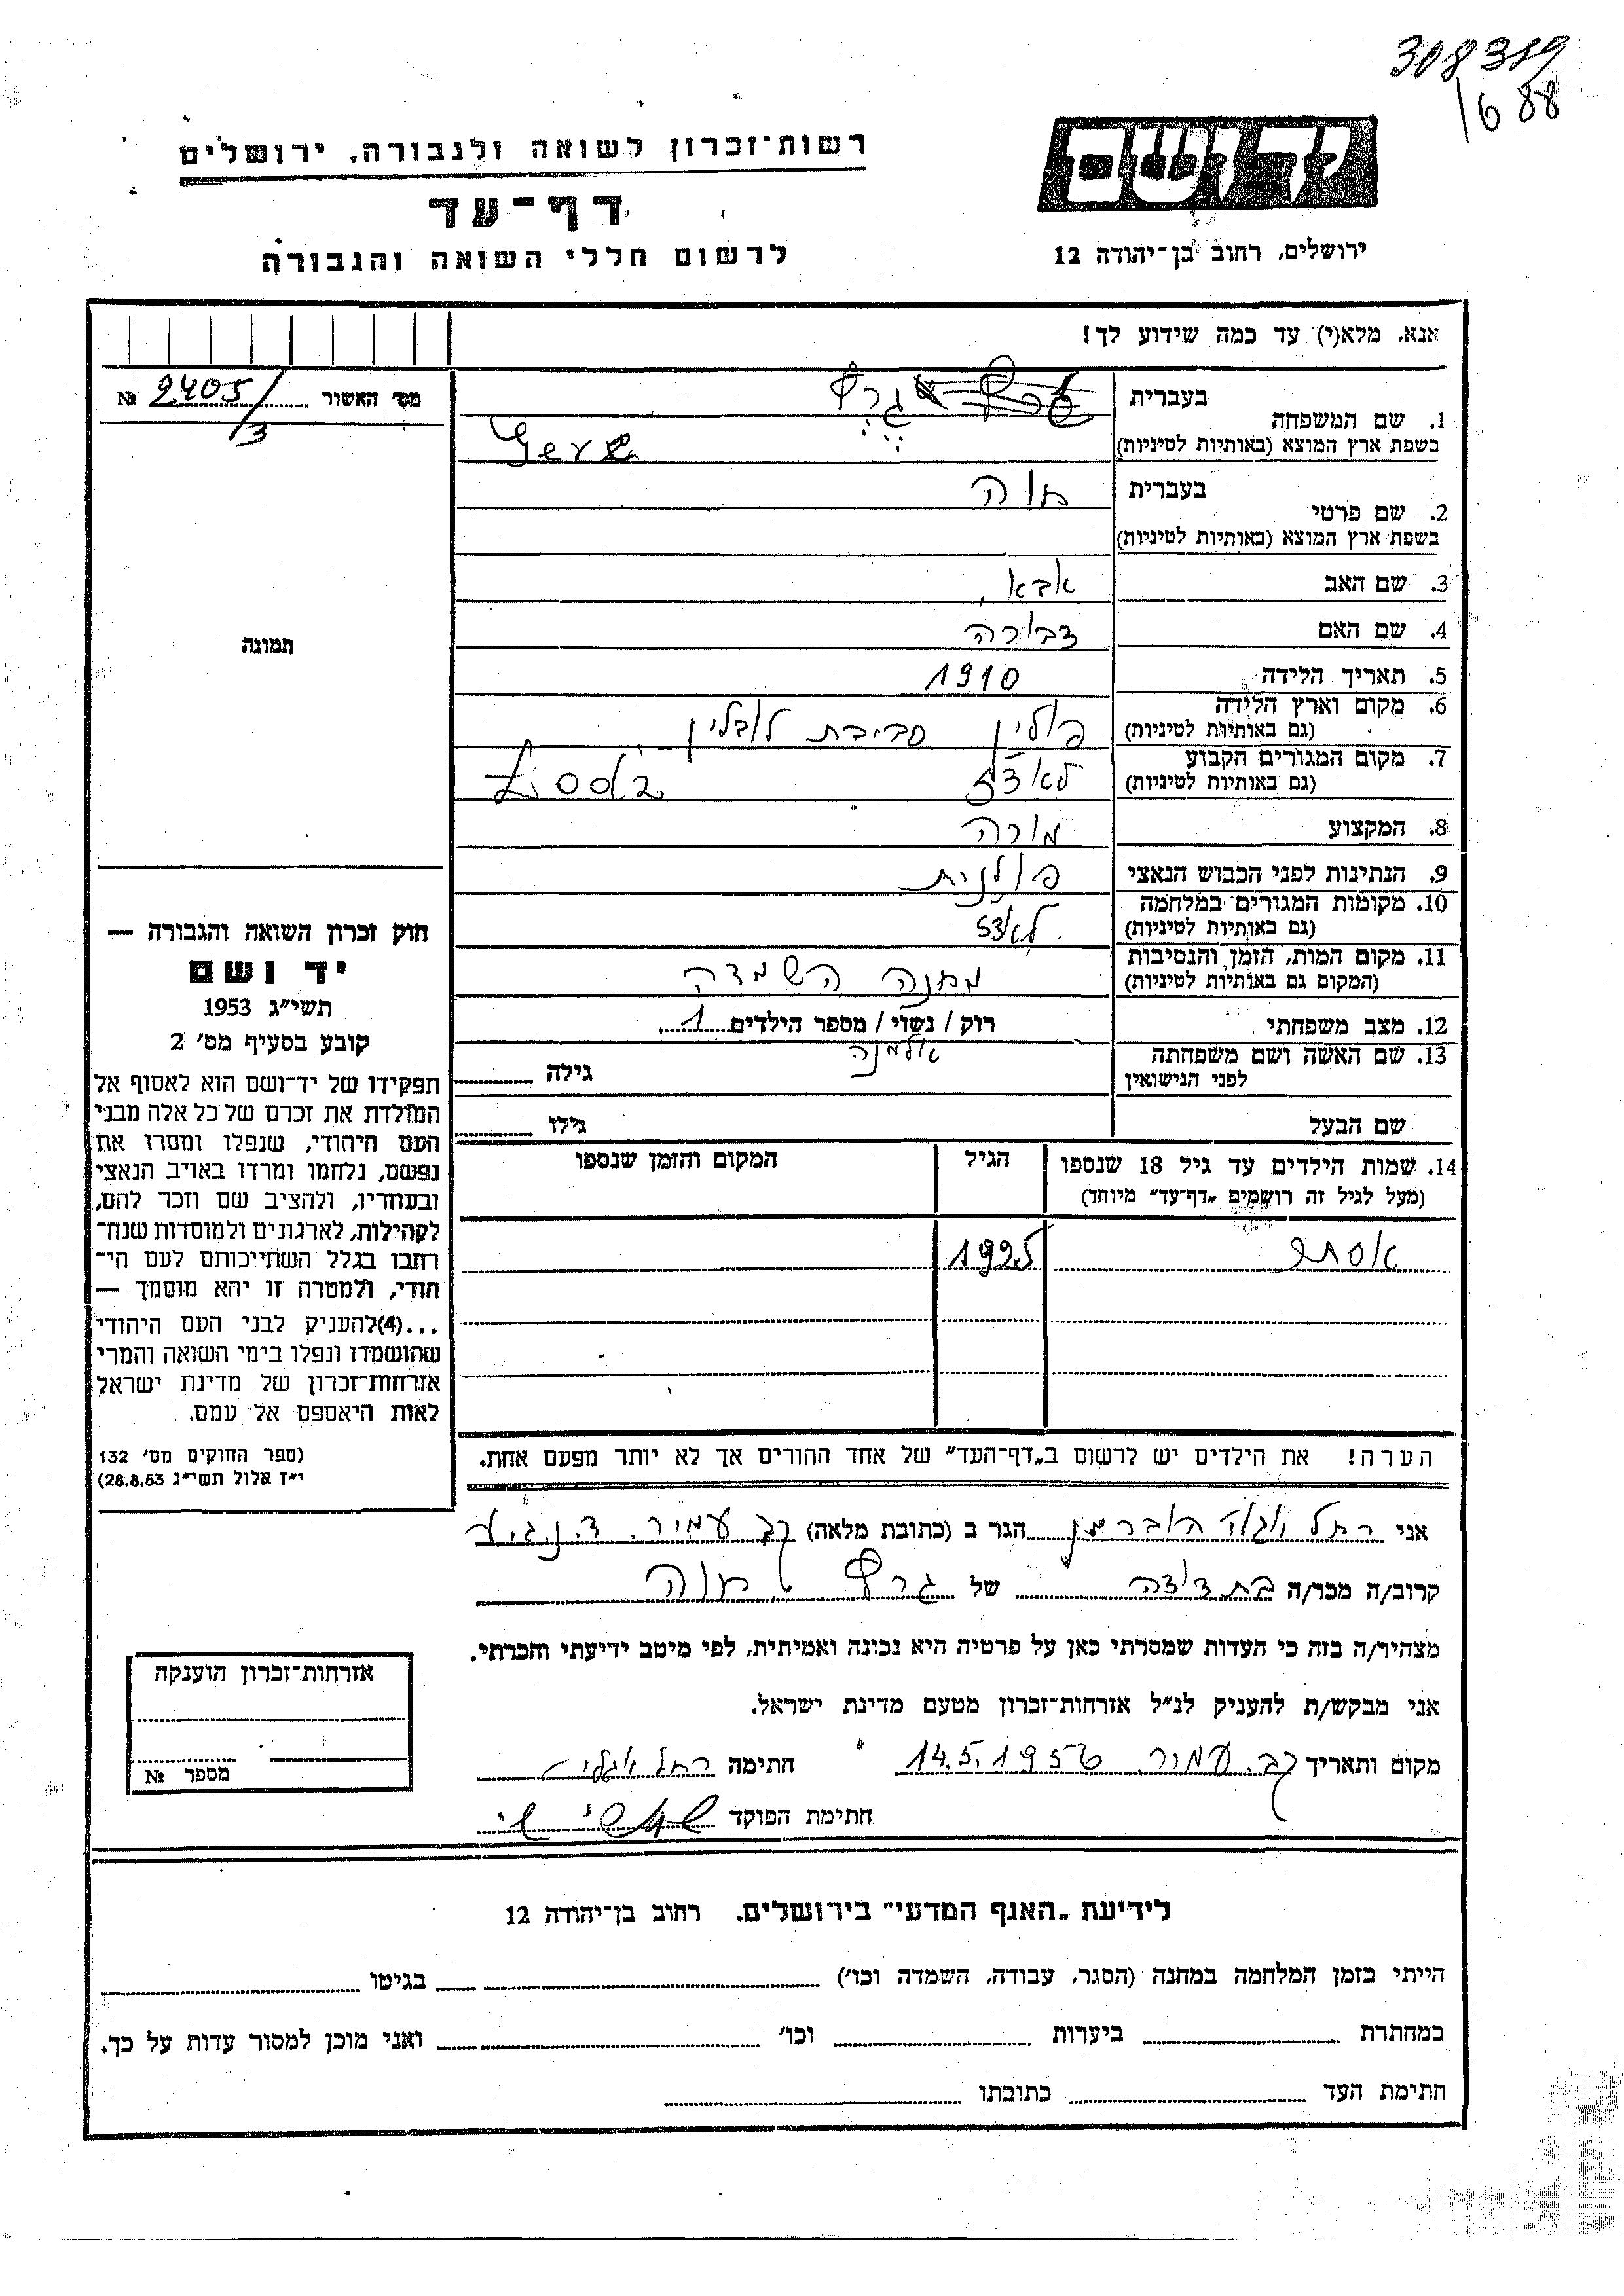 308389
1688
יד ושם
רשות־זכרון לשואה ולגבורה, ירושלים
דף־עד
לרשום חללי השואה והגבורה
ירושלים, רחוב בן־יהודה 12
אנא, מלא(י) עד כמה שידוע לך!
מס׳ האשור 2405/3 №
1. שם המשפחה
בעברית גרף
בשפת ארץ המוצא (באותיות לטיניות)
2. שם פרטי
בעברית חוה
בשפת ארץ המוצא (באותיות לטיניות)
3. שם האב אבא
4. שם האם דבורה
5. תאריך הלידה 1910
6. מקום וארץ הלידה פולין סביבת לובלין
(גם באותיות לטיניות)
7. מקום המגורים הקבוע לאדז
(גם באותיות לטיניות)
8. המקצוע מורה
9. הנתינות לפני הכבוש הנאצי פולנית
10. מקומות המגורים במלחמה לאדז
(גם באותיות לטיניות)
11. מקום המות, הזמן והנסיבות מחנה השמדה
(המקום גם באותיות לטיניות)
12. מצב משפחתי רוק / נשוי / מספר הילדים 1
13. שם האשה ושם משפחתה אלמנה
לפני הנישואין גילה
שם הבעל גילו
14. שמות הילדים עד גיל 18 שנספו הגיל המקום והזמן שנספו
(מעל לגיל זה רושמים „דף־עד״ מיוחד)
אסתר 1925
הערה! את הילדים יש לרשום ב„דף־העד״ של אחד ההורים אך לא יותר מפעם אחת.
תמונה
חוק זכרון השואה והגבורה —
יד ושם
תשי״ג 1953
קובע בסעיף מס׳ 2
תפקידו של יד־ושם הוא לאסוף אל
המולדת את זכרם של כל אלה מבני
העם היהודי, שנפלו ומסרו את
נפשם, נלחמו ומרדו באויב הנאצי
ובעוזריו, ולהציב שם וזכר להם,
לקהילות, לארגונים ולמוסדות שנח־
רבו בגלל השתייכותם לעם הי־
הודי, ולמטרה זו יהא מוסמך —
...(4)להעניק לבני העם היהודי
שהושמדו ונפלו בימי השואה והמרי
אזרחות־זכרון של מדינת ישראל
לאות היאספם אל עמם.
(ספר החוקים מס׳ 132
י״ז אלול תשי״ג 28.8.53)
אני רחל הוברמן הגר ב (כתובת מלאה) קב׳ עמיר. ד.נ.ג.ע
קרוב/ה מכר/ה בת דודה של גרף חוה
מצהיר/ה בזה כי העדות שמסרתי כאן על פרטיה היא נכונה ואמיתית, לפי מיטב ידיעתי והכרתי.
אני מבקש/ת להעניק לנ״ל אזרחות־זכרון מטעם מדינת ישראל.
מקום ותאריך קב. עמיר. 14.5.1956 חתימה רחל
חתימת הפוקד
אזרחות־זכרון הוענקה
מספר №
לידיעת „האגף המדעי״ בירושלים. רחוב בן־יהודה 12
הייתי בזמן המלחמה במחנה (הסגר, עבודה, השמדה וכו׳) בגיטו
במחתרת ביערות וכו׳ ואני מוכן למסור עדות על כך.
חתימת העד כתובתו